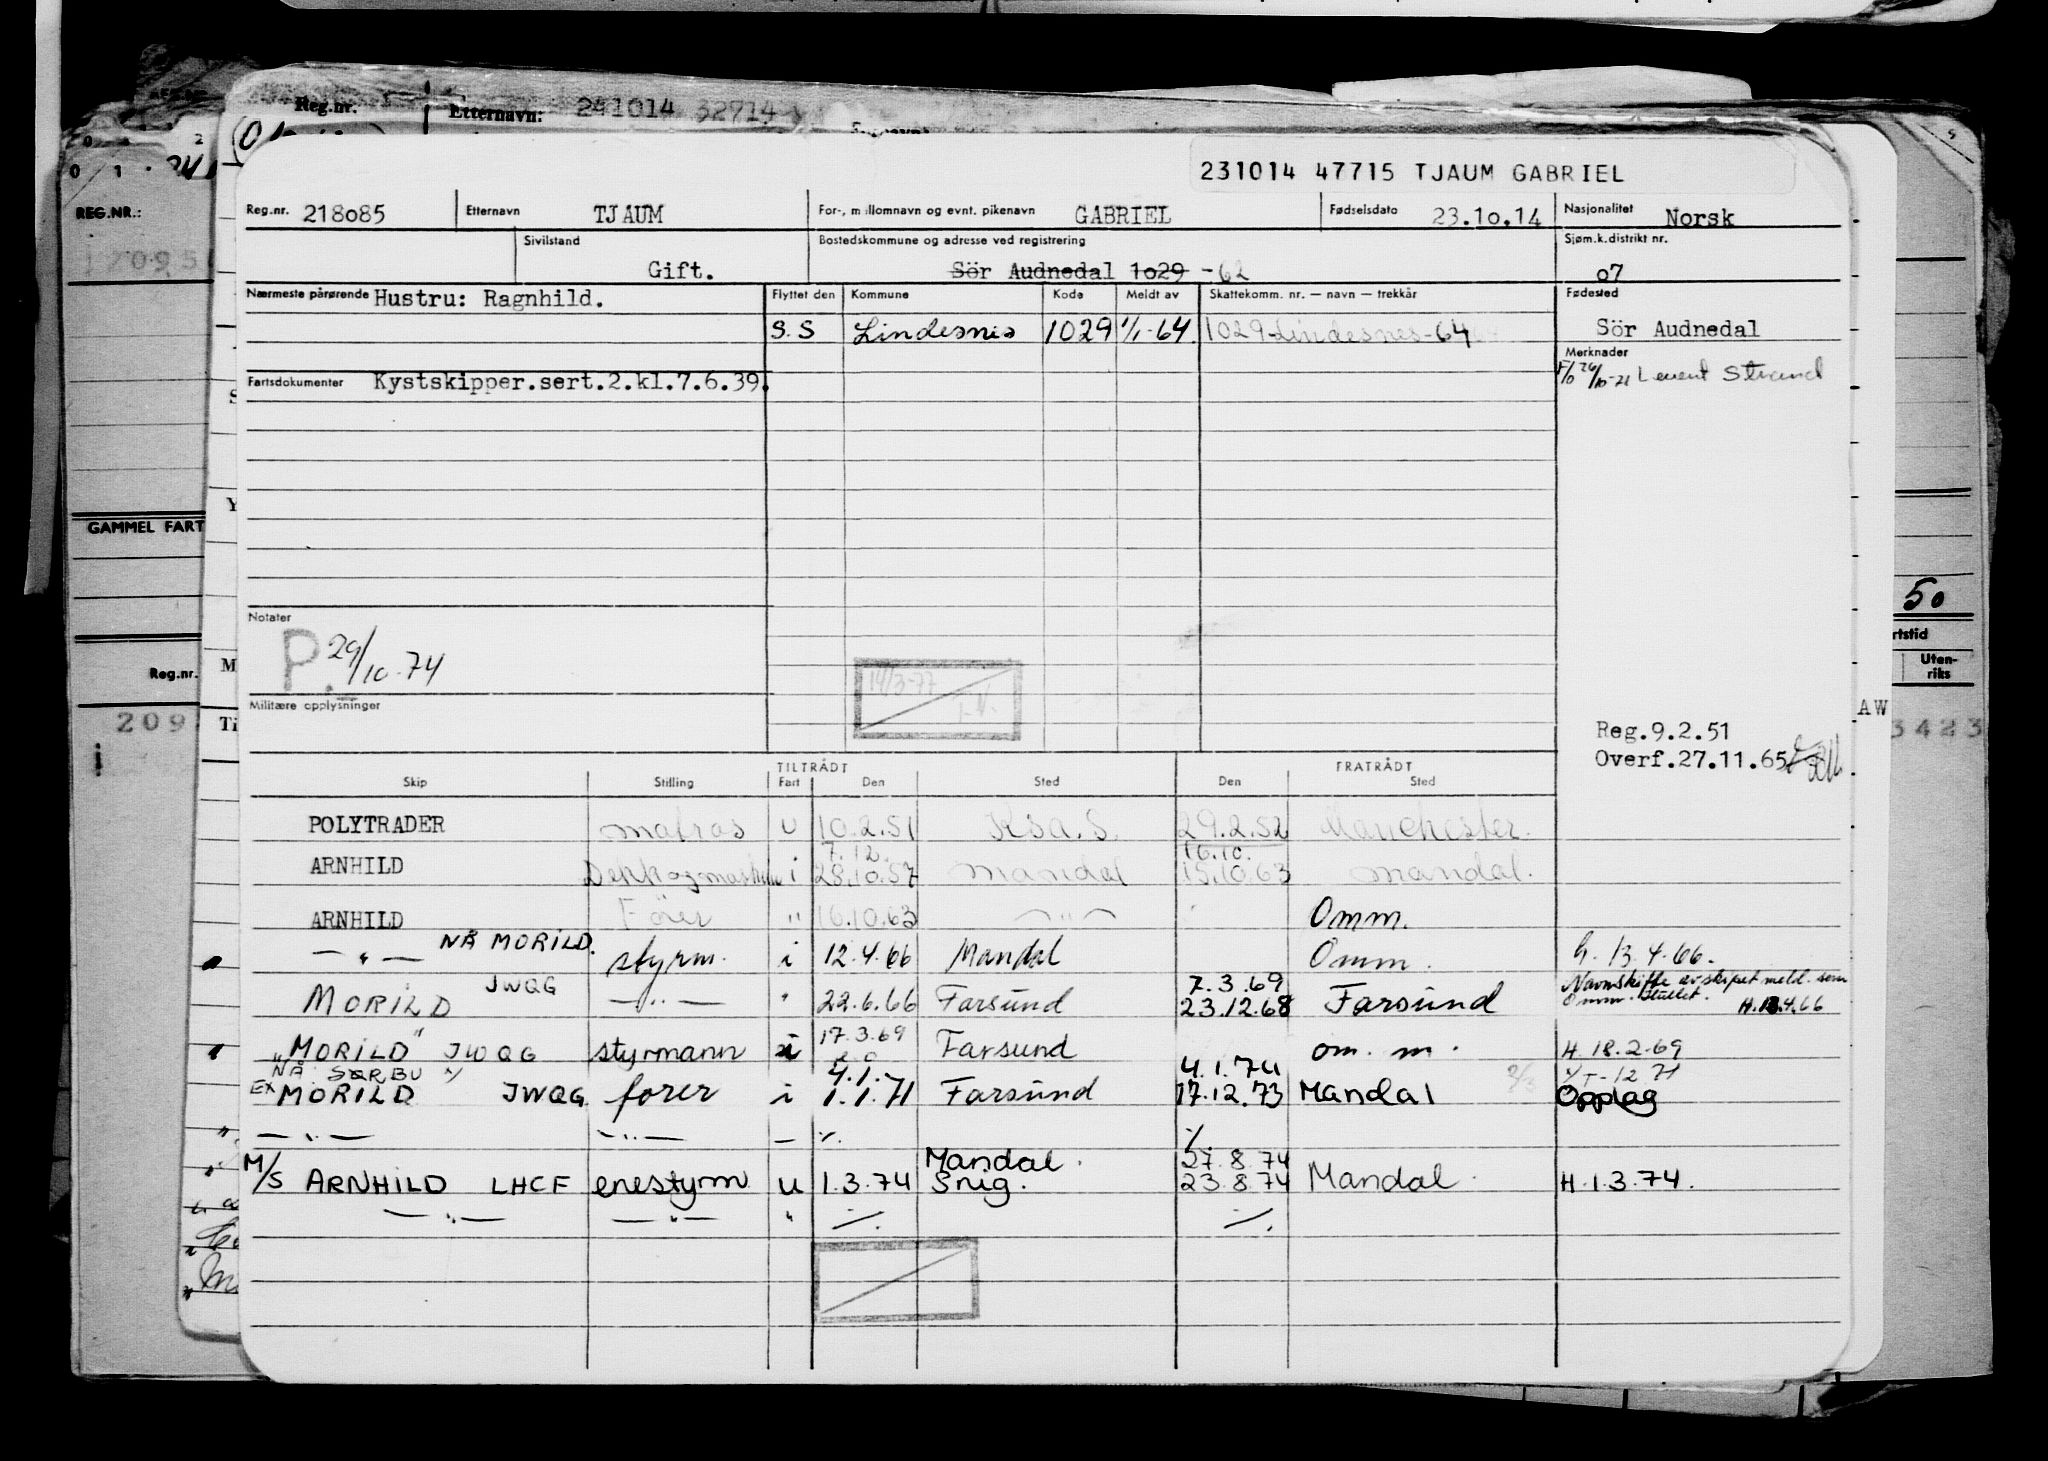 Reg.nr. Etternavn: 241014 32914
231014 47715 TJAUM GABRIEL
Reg.nr. 218o85 Etternavn TJAUM For-, mellomnavn og evnt. pikenavn GABRIEL Fødselsdato 23.1o.14 Nasjonalitet Norsk
Sivilstand Gift. Bostedskommune og adresse ved registrering Sör Audnedal 1o29 -62 Sjøm.k.distrikt nr. o7
Nærmeste pårørende Hustru: Ragnhild. Flyttet den Kommune Kode Meldt av Skattekomm. nr. — navn — trekkår Fødested
S.S Lindesnes 1029 1/1-64 1029 Lindesnes-64 Sör Audnedal
Merknader
F/o 26/10-21 Levent Strand
Fartsdokumenter Kystskipper.sert.2.kl.7.6.39.
REG.NR.:
GAMMEL FART
50
Notater
P. 29/10-74
14/3-77
Militære opplysninger
Reg.nr.
Uten-
riks
209
3423
AW
Reg.9.2.51
Overf.27.11.65
TILTRÅDT FRATRÅDT
Skip Stilling Fart Den Sted Den Sted
POLYTRADER matros u 10.2.51 Ksa.S. 29.2.52 Manchester.
7.12. 16.10.
ARNHILD i 28.10.57 Mandal 15.10.63 Mandal.
ARNHILD Fører " 16.10.63 — " — Omm.
— " — NÅ MORILD. styrm. i 12.4.66 Mandal Omm. h. 13.4.66.
MORILD JWQG — " — " 22.6.66 Farsund 7.3.69 23.12.68 Farsund Navneskifte av skipet meld. som Omm. H.13.4.66
"MORILD" JWQG styrmann i 17.3.69 Farsund om. m. H 18.2.69
NÅ SØRBU
EX MORILD JWQG fører i 4.1. 1.1.71 Farsund 4.1.74 17.12.73 Mandal Opplag
— " — — " — — ٪. ٪
M/S ARNHILD LHCF enestyrm u 1.3.74 Mandal. Snig. 27.8.74 23.8.74 Mandal H.1.3.74.
— " — — " — " ٪. ٪.